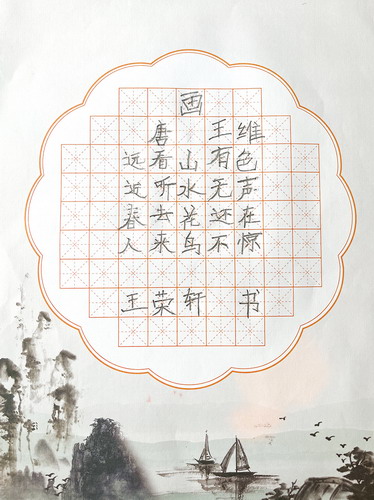 画
唐 王维
远看山有色
近听水无声
春去花还在
人来鸟不惊
王荣轩 书